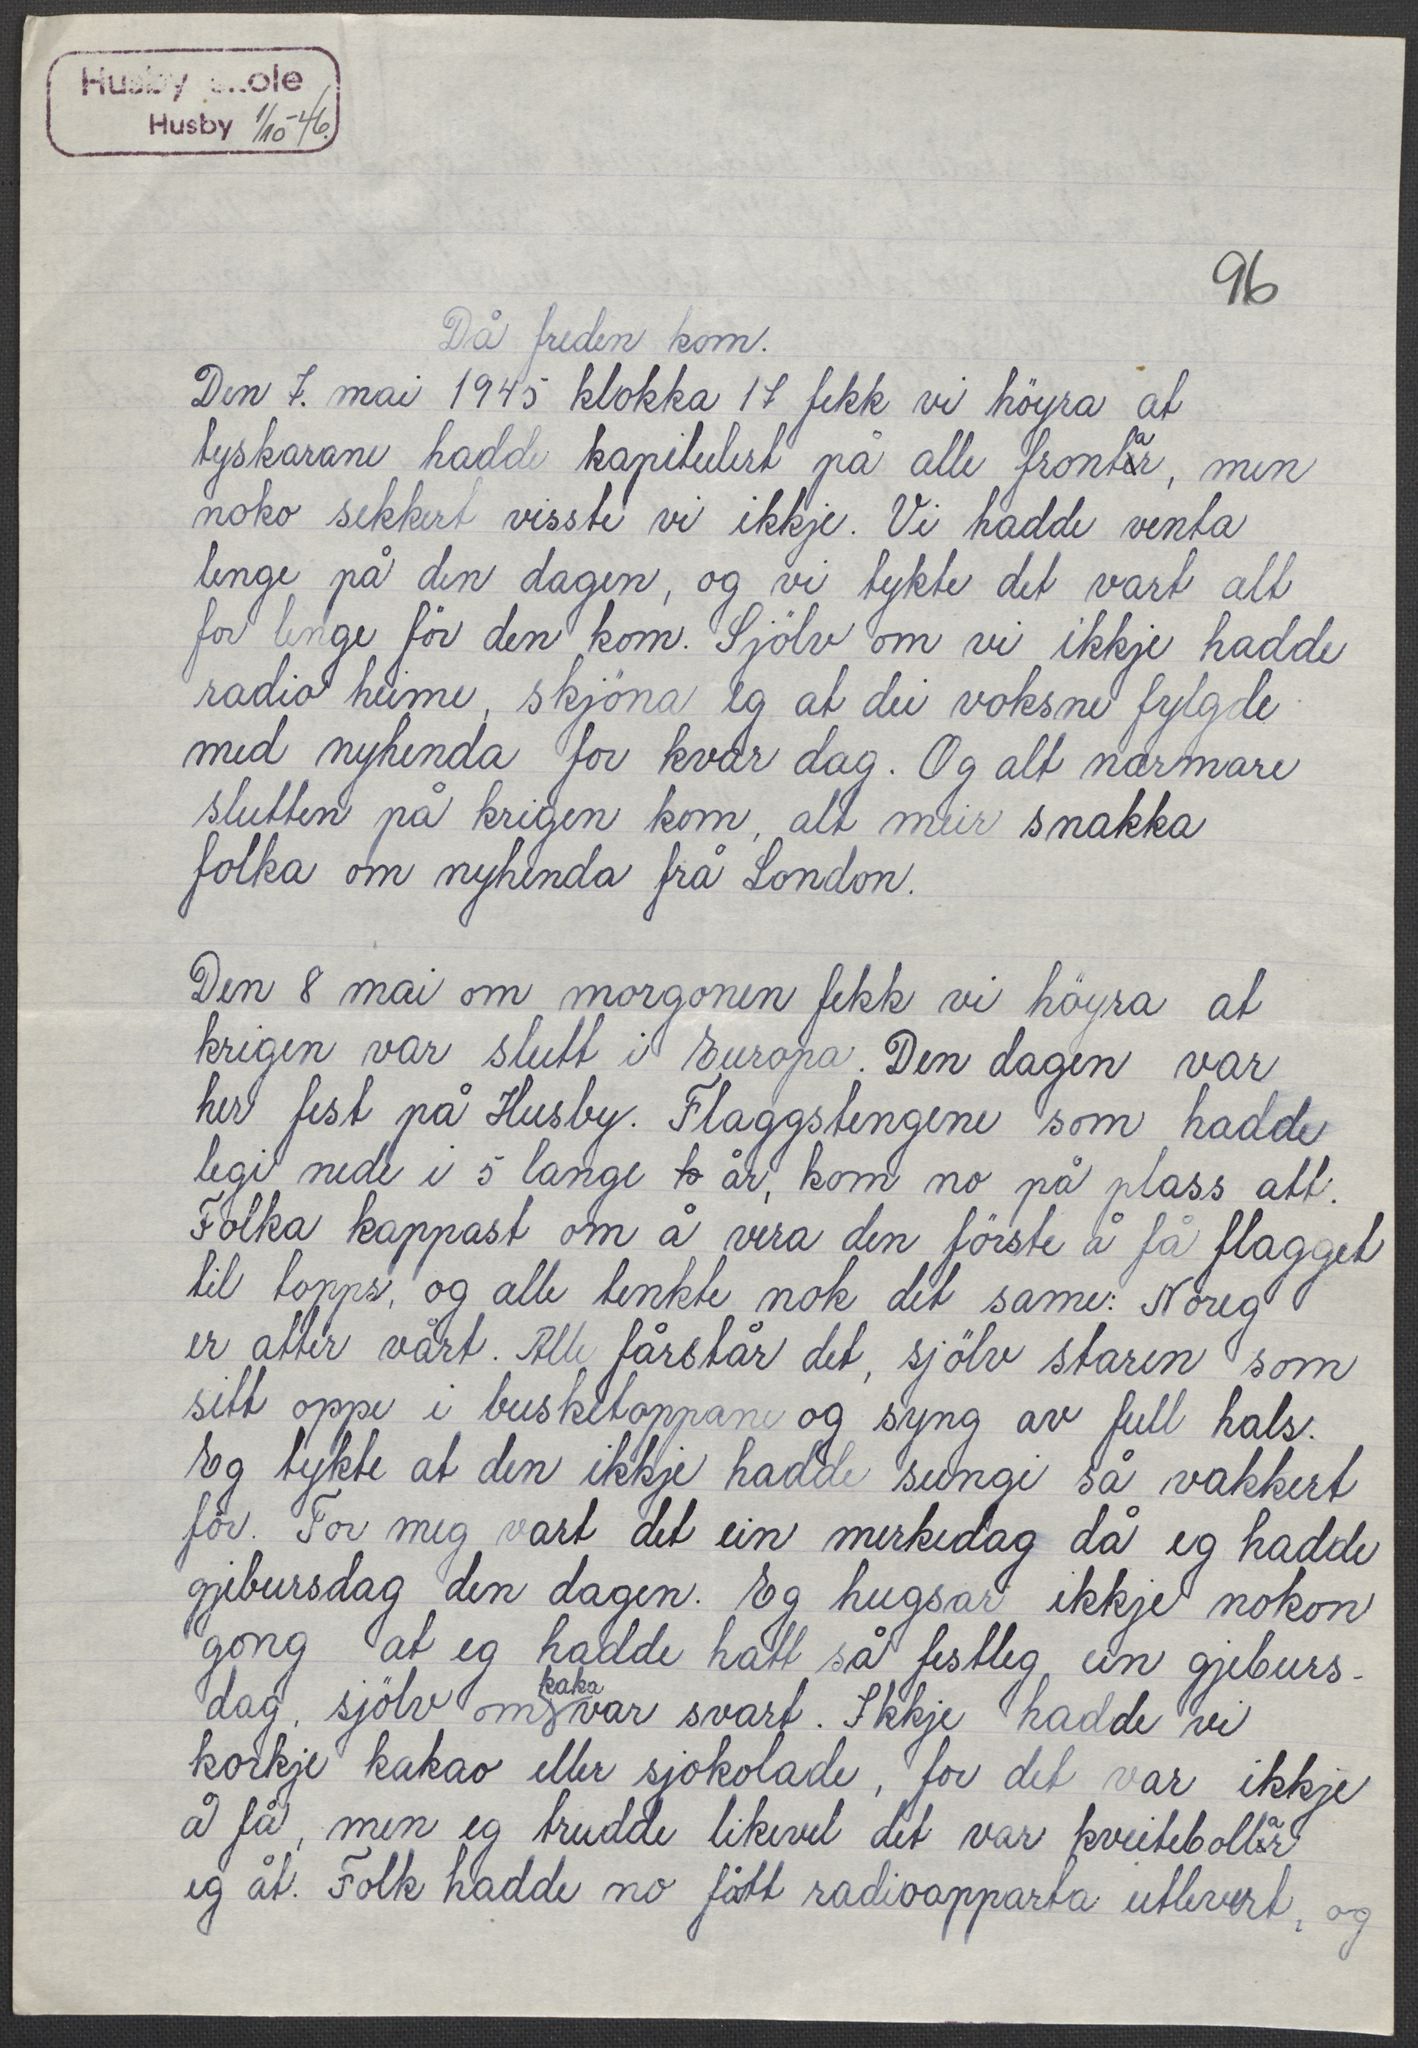 Husby skole
Husby 1/10-46.
96
Då freden kom.
Den 7. mai 1945 klokka 17 fekk vi höyra at
tyskarane hadde kapitulert på alle frontar, men
noko sekkert visste vi ikkje. Vi hadde venta
lenge på den dagen, og vi tykte det vart alt
for lenge för den kom. Sjölv om vi ikkje hadde
radio heime, skjöna eg at dei voksne fylgde
med nyhenda for kvar dag. Og alt nærmare
slutten på krigen kom, alt meir snakka
folka om nyhenda frå London.
Den 8 mai om morgonen fekk vi höyra at
krigen var slutt i Europa. Den dagen var
her fest på Husby. Flaggstengene som hadde
legi nede i 5 lange år, kom no på plass att.
Folka kappast om å vera den förste å få flagget
til topps, og alle tenkte nok det same: Noreg
er atter vårt. Alle fårstår det, sjölv staren som
sitt oppe i busketoppane og syng av full hals.
Eg tykte at den ikkje hadde sungi så vakkert
för. For meg vart det ein merkedag då eg hadde
gjebursdag den dagen. Eg hugsar ikkje nokon
gong at eg hadde hatt så festleg ein gjeburs-
dag, sjölv om kaka var svart. Ikkje hadde vi
korkje kakao eller sjokolade, for det var ikkje
å få, men eg trudde likevel det var kveitebollar
eg åt. Folk hadde no fått radioapparta utlevert, og